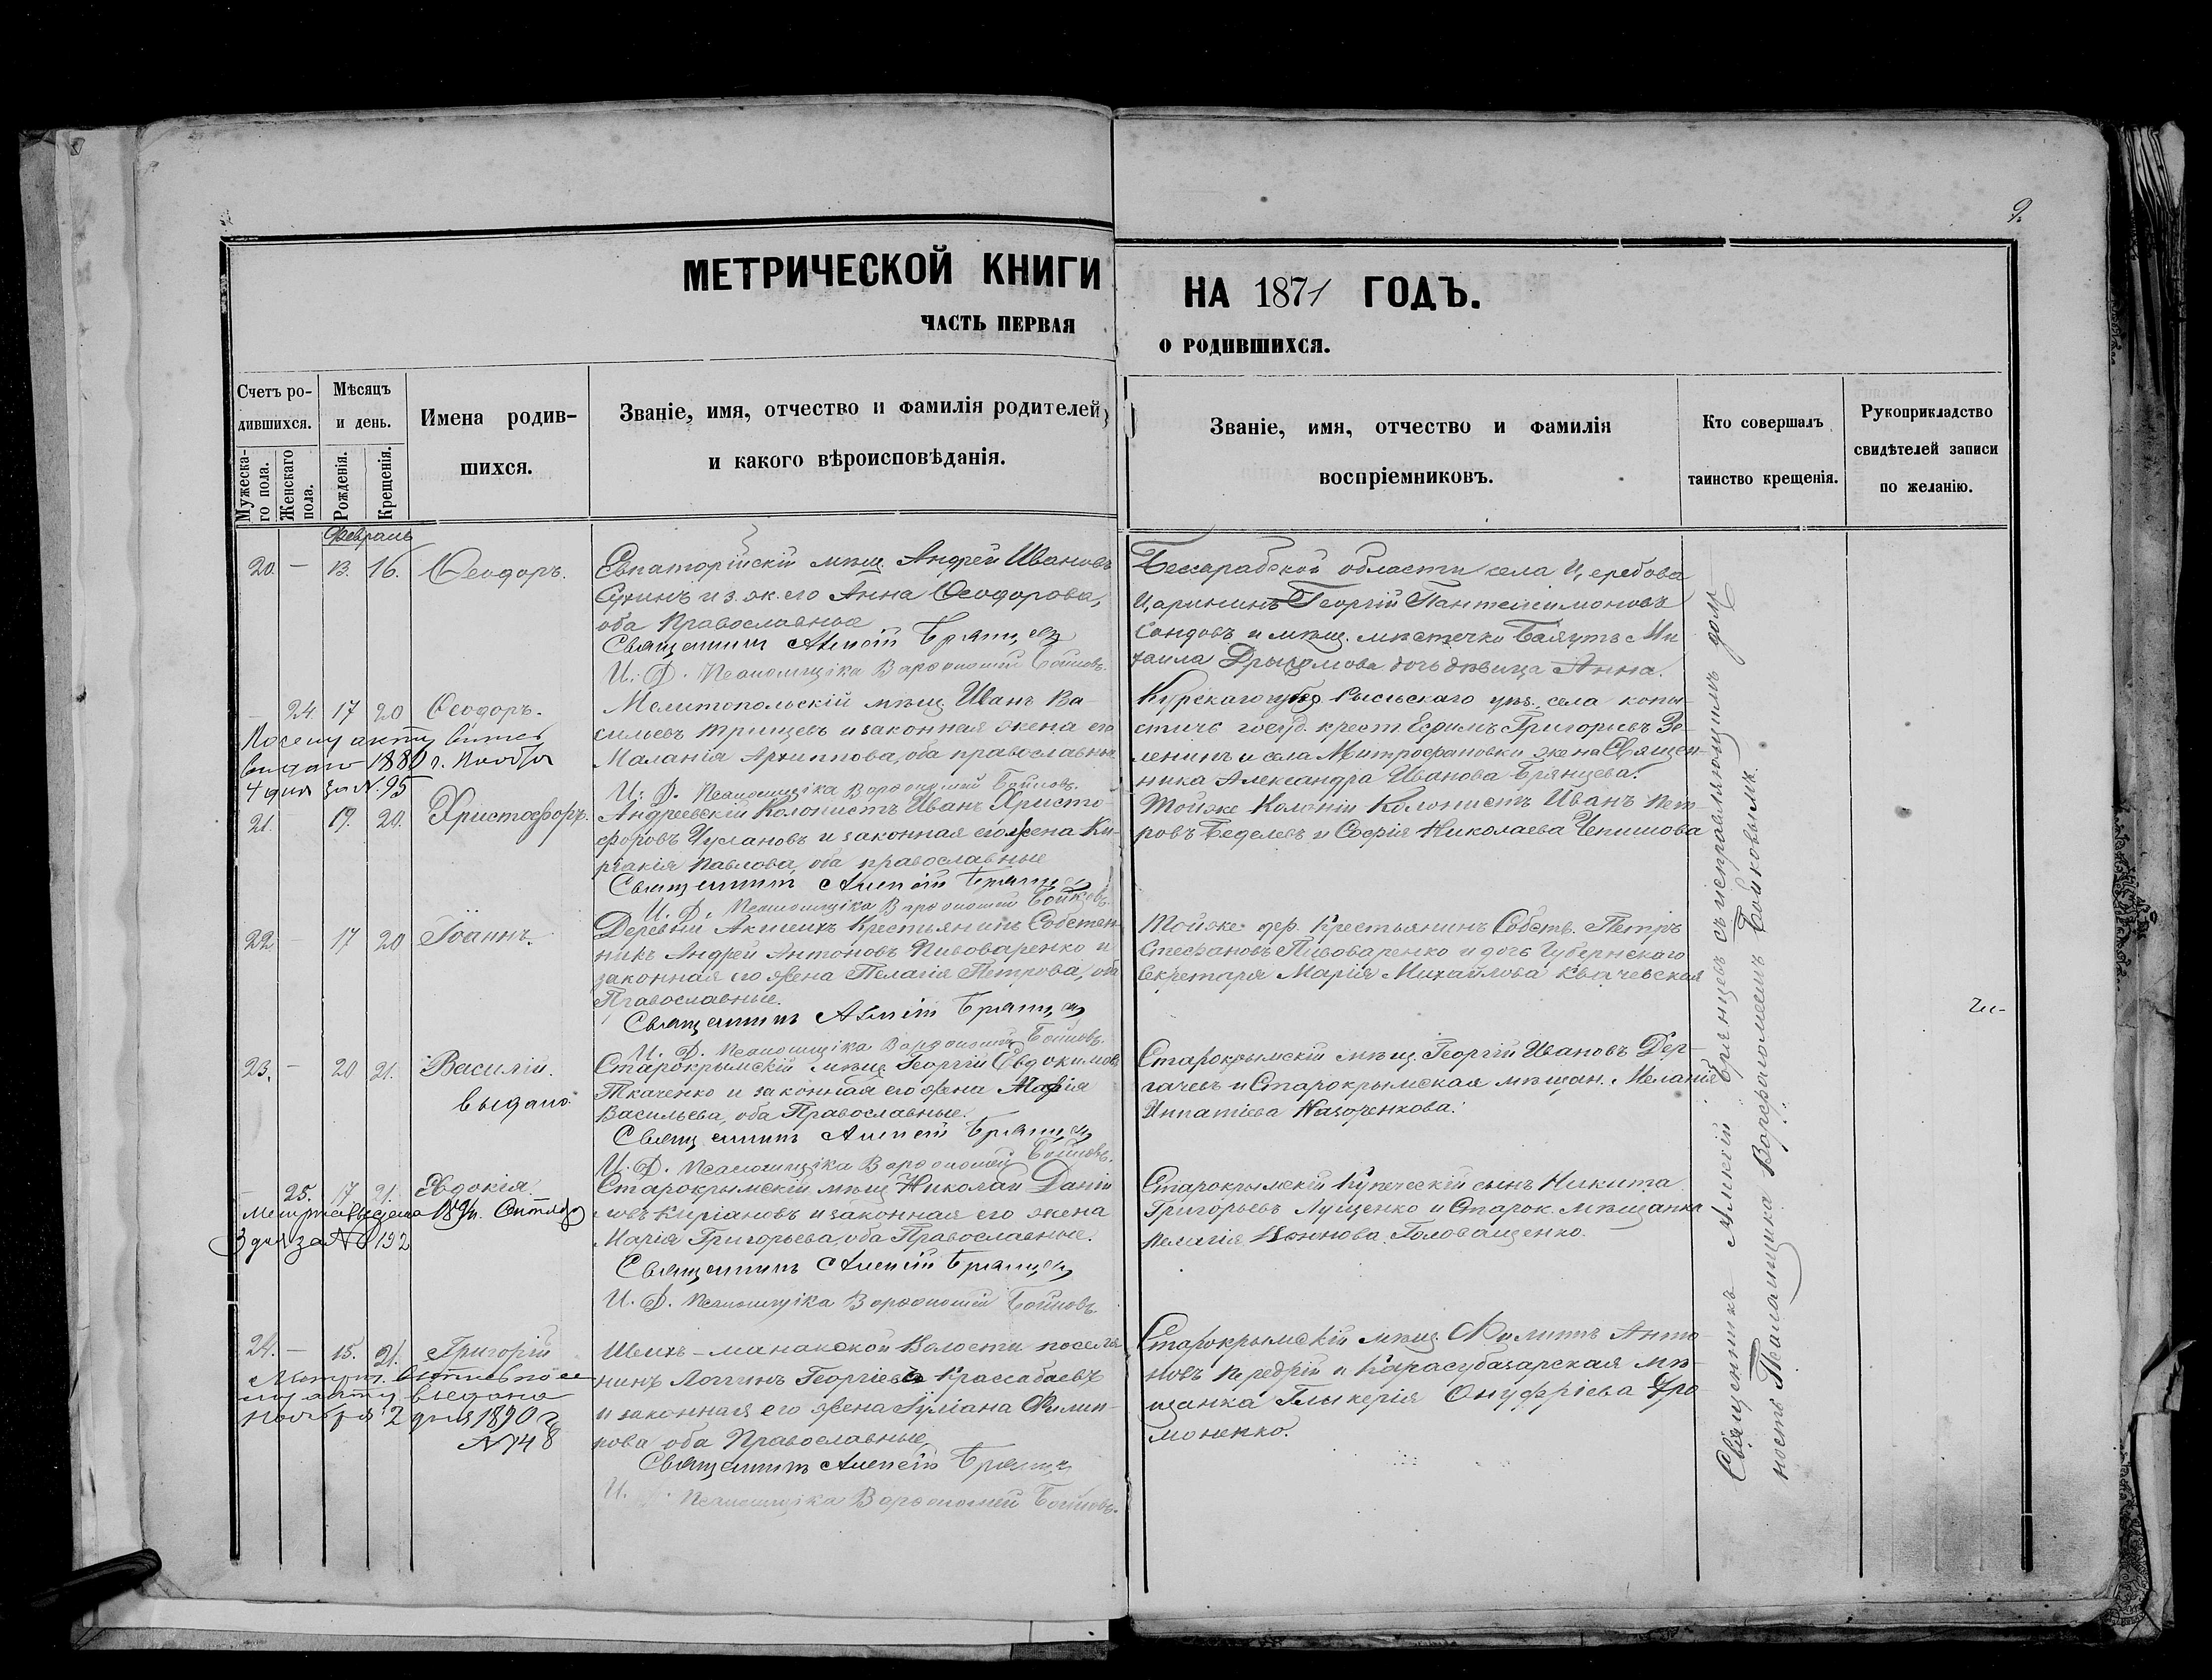 9.
МЕТРИЧЕСКОЙ КНИГИ НА 1871 ГОДЪ.
ЧАСТЬ ПЕРВАЯ О РОДИВШИХСЯ.
Счетъ ро-
дившихся.
Мужеска-
го пола.
Женскаго
пола.
Мѣсяцъ
и день.
Рожденія.
Крещенія.
Имена родив-
шихся.
Званіе, имя, отчество и фамилія родителей,
и какого вѣроисповѣданія.
Званіе, имя, отчество и фамилія
воспріемниковъ.
Кто совершалъ
таинство крещенія.
Рукоприкладство
свидѣтелей записи
по желанію.
Февраль
20. — 13. 16. Ѳеодоръ.
Евпаторійскій мѣщ. Андрей Ивановъ
и з. ж. его Анна Ѳеодорова,
оба Православные
Священникъ Алексій Брянцевъ
И. Д. Псаломщика Варѳоломей Бойковъ.
Бессарабской области села
Царининъ Георгій Пантелеимоновъ
Сандовъ и мѣщ. мѣстечка Ми
хаила дочь дѣвица Анна.
— 24. 17 20 Ѳеодоръ.
Посему акту
выдано 1880 г. Ноября
4 дня за №. 95
Мелитопольскій мѣщ. Иванъ Ва-
сильевъ и законная жена его
Маланія Архиппова, оба православные
И. Д. Псаломщика Варѳоломей Бойковъ.
Курскаго губ. Рыльскаго уѣз. села копы-
стичь госуд. крест. Ефимъ Григорьевъ Зе-
ленинъ и села Митрофановки жена Священ-
ника Александра Иванова Брянцева.
21. — 19. 20. Христофоръ.
Андреевскій Колонистъ Иванъ Христо-
форовъ Чуслановъ и законная его жена Ки-
ріакія Павлова, оба православные
Священникъ Алексій Брянцевъ
И. Д. Псаломщика Варѳоломей Бойковъ.
Тойже Колоніи Колонистъ Иванъ Пет-
ровъ Беделевъ и Софія Николаева Чепишова
22 — 17 20 Іоаннъ.
Деревни Крестьянинъ Собствен-
никъ Андрей Антоновъ Пивоваренко и
законная его жена Пелагія Петрова, оба
Православные.
Священникъ Алексій Брянцевъ
И. Д. Псаломщика Варѳоломей Бойковъ.
Тойже дер. Крестьянинъ Собств. Петръ
Стефановъ Пивоваренко и дочь Губернскаго
Секретаря Марія Михайлова Квачевская
23. — 20 21. Василій.
выдано.
Старокрымскій мѣщ. Георгій Евдокимовъ
Ткаченко и законная его жена Марія
Васильева, оба Православные.
Священникъ Алексій Брянцевъ
И. Д. Псаломщика Варѳоломей Бойковъ.
Старокрымскій мѣщ. Георгій Ивановъ Дер-
гачевъ и Старокрымская мѣщан. Меланія
Иппатіева Назоренкова.
— 25. 17 21. Евдокія.
3 дня за № 192
Старокрымскій мѣщ. Николай Даніи
ловъ Киріановъ и законная его жена
Марія Григорьева, оба Православные.
Священникъ Алексій Брянцевъ
И. Д. Псаломщика Варѳоломей Бойковъ.
Старокрымскій Купеческій сынъ Никита
Григорьевъ Лущенко и Старок. мѣщанка
Пелагія Головащенко.
24. — 15. 21. Григорій
Метрич. выпись по се
му акту выдана
Ноября 2 дня 1890 г.
№ 748
Шейхъ-манакской Волости поселя
нинъ Логгинъ Георгіевъ Крассабаевъ
и законная его жена Іуліана Филип-
пова оба Православные
Священникъ Алексій Брянцевъ
И. Д. Псаломщика Варѳоломей Бойковъ.
Старокрымскій мѣщ. Филиппъ Анто
новъ и Карасубазарская мѣ-
щанка Гликерія Онуфріева
Священникъ Алексій Брянцевъ съ исправляющимъ долж
ность Псаломщика Варфоломеемъ Бойковымъ.